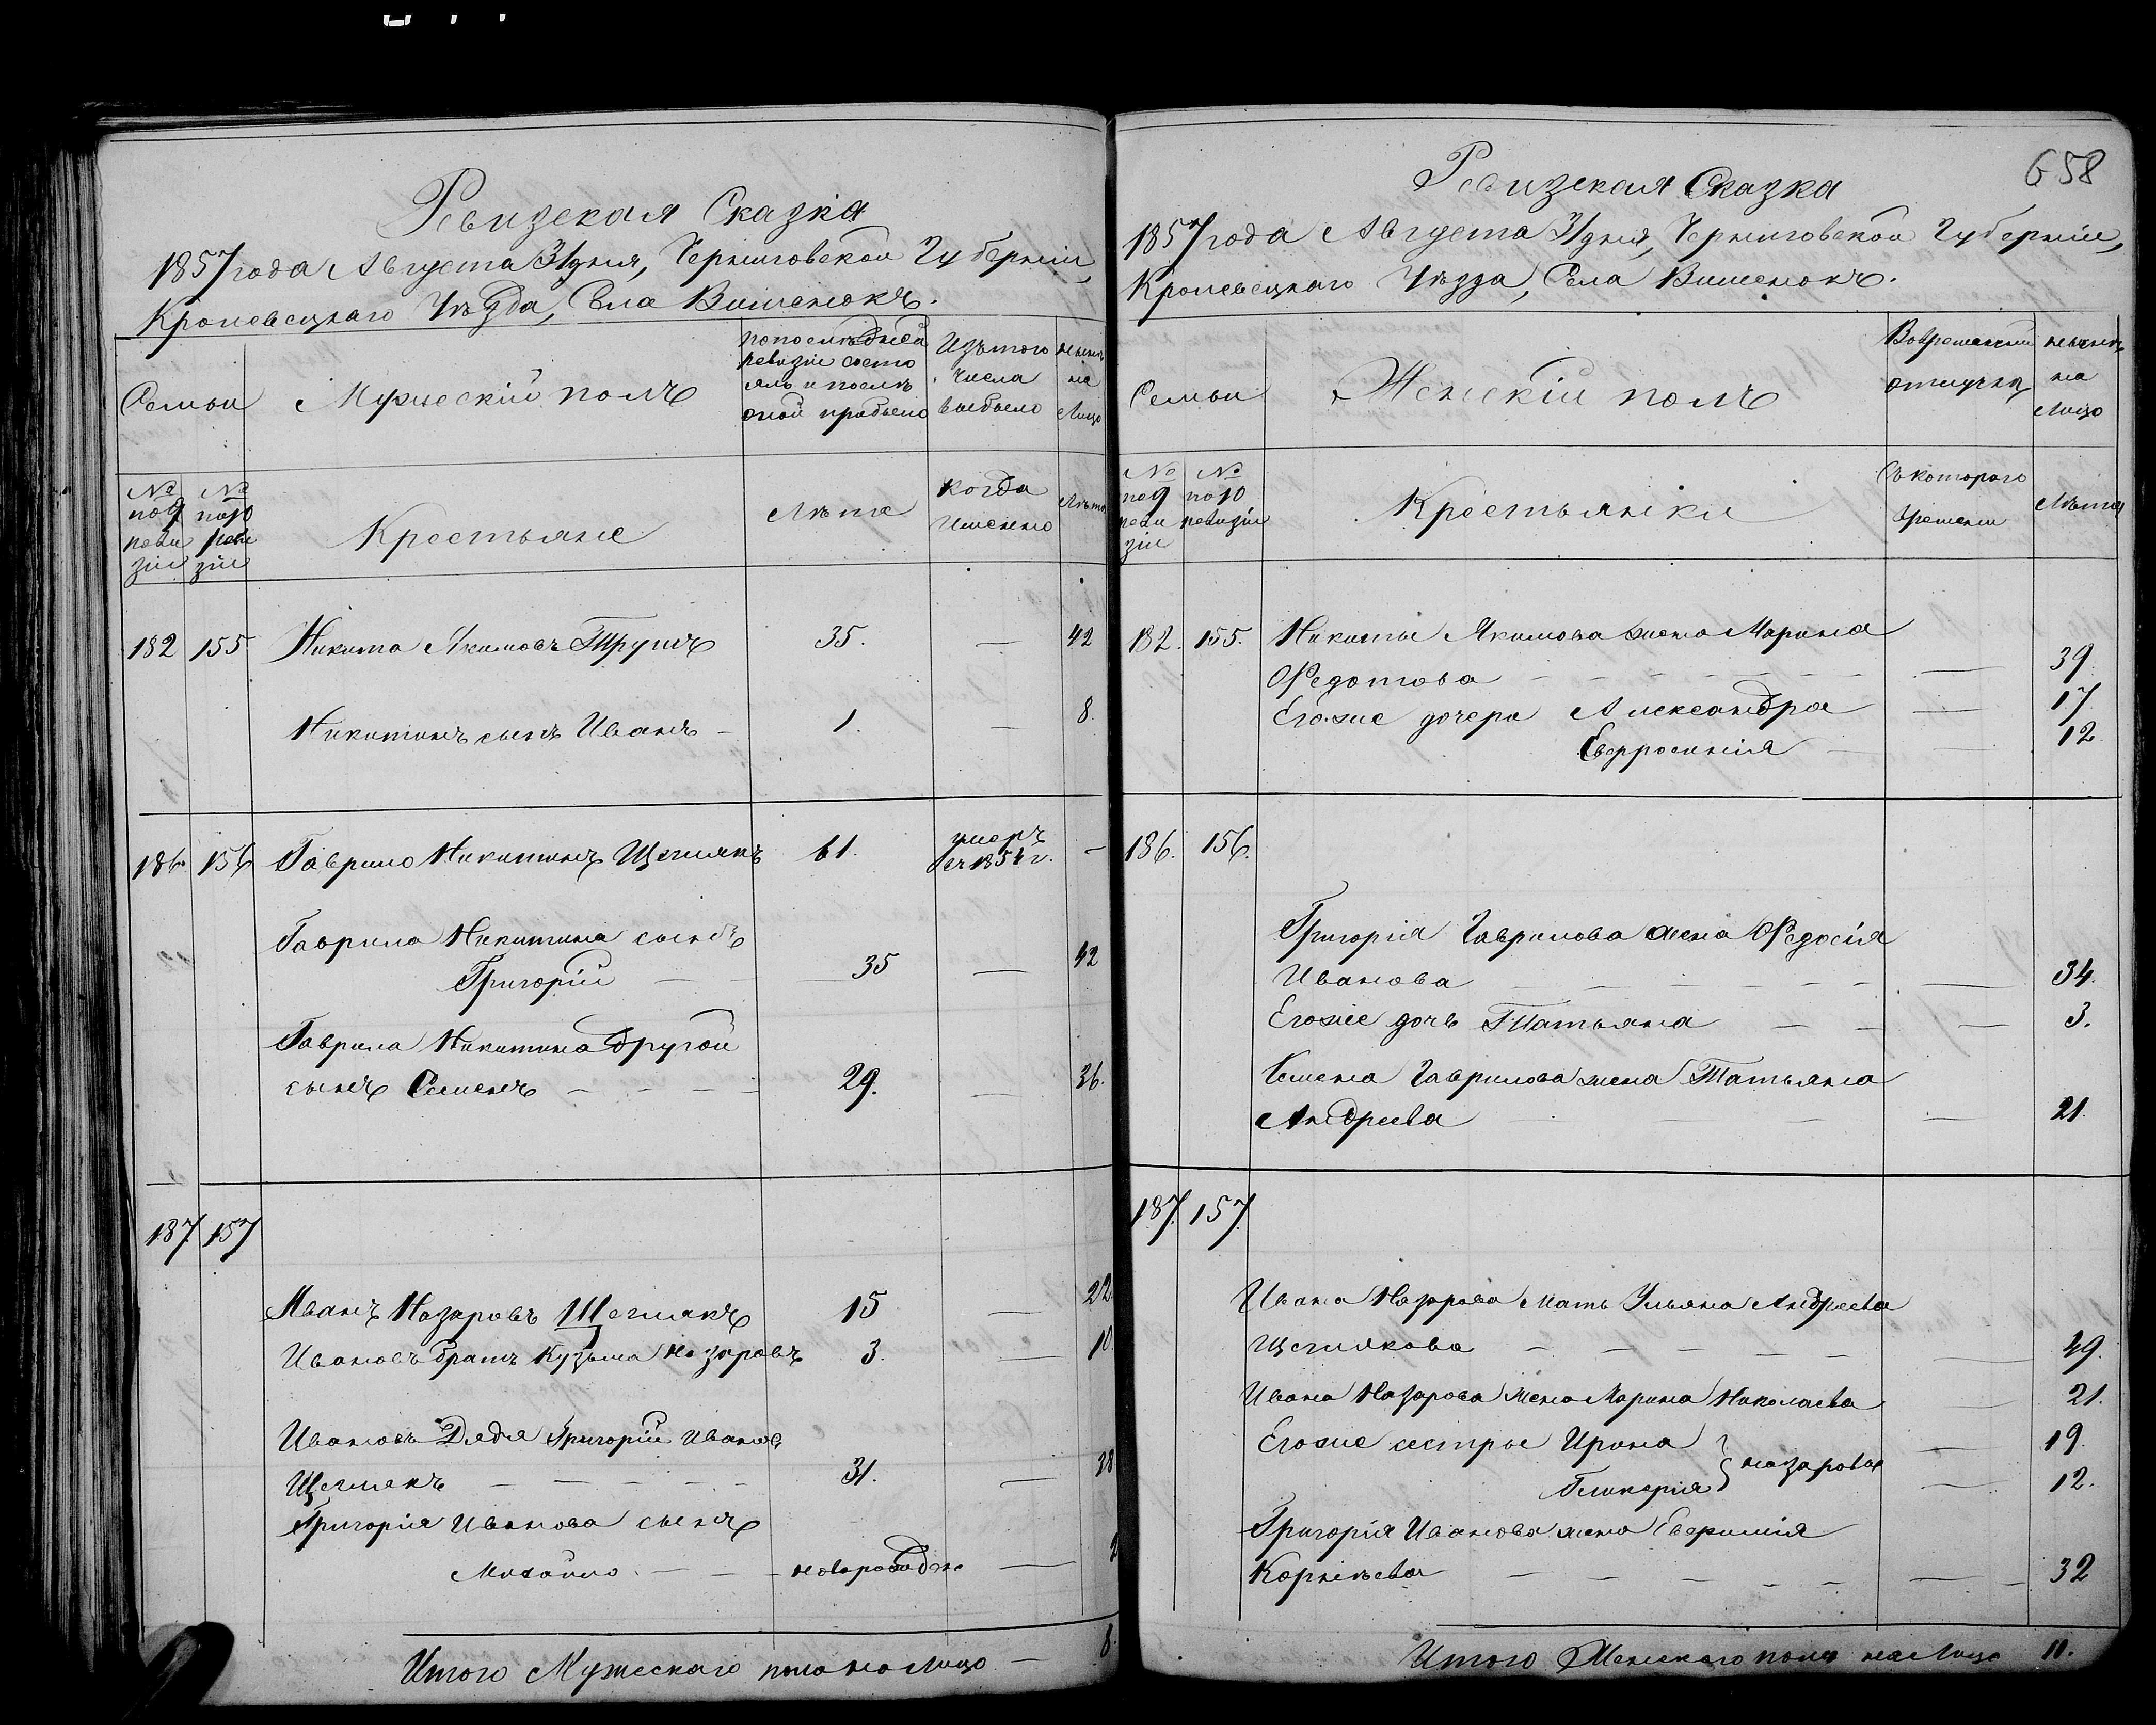 Ревизская Сказка
1857 года Августа 31 дня, Черниговской Губерніи,
Кролевецкаго Уѣзда, Села Вишенокъ.
Семьи
Мужескій полъ
по последней
ревизіи состо
ялъ и послѣ
оной прибыло
Изътого
числа
выбыло
ныне
на
Лицо
№
по 9
реви
зіи
№
по 10
реви
зіи
Крестьяне
Лѣта
когда
именно
Лѣта
182 155 Никита Якимовъ 35. — 42
Никитинъ сынъ Иванъ — 1. — 8.
186. 156 Гаврило Никитинъ Щеглякъ 61. умеръ
въ 1854 г. —
Гаврила Никитина сынъ
Григорій — — 35 — 42
Гаврила Никитина другой
сынъ Семенъ — — — 29. — 36.
187. 157
Иванъ Назаровъ Щеглякъ 15 — 22
Ивановъ братъ Кузьма Назаровъ 3. — 10.
Ивановъ Дядя Григорій Ивановъ
Щеглякъ — — — — 31. — 38
Григорія Иванова сынъ
Михайло — — новорожден — 2
Итого Мужескаго пола на Лицо — 8.
658
Ревизская Сказка
1857 года Августа 31 дня, Черниговской Губерніи,
Кролевецкаго Уѣзда, Села Вишенокъ.
Семьи
Женскій полъ
Вовременной
отлучкѣ
ныне
на
Лицо
№
по 9
реви
зіи
№
по 10
ревизіи
Крестьянки
Съ котораго
времени
Лѣта
182. 155. Никиты Якимова жена Марина
Федотова — — — — — — — 39.
Егоже дочери Александра — 17
Евфросинія — — 12
186. 156.
Григорія Гаврилова жена Федосія
Иванова — — — — — — — 34.
Егоже дочь Татьяна — — — 3.
Семена Гаврилова жена Татьяна
Андреева — — — — 21.
187. 157.
Ивана Назарова мать Ульяна Андреева
Щеглякова — — — — — — 49.
Ивана Назарова жена Марина Николаева — 21.
Егоже сестры Ирина } Назаровы — 19
Гликерія — 12.
Григорія Иванова жена Евфимія
Корнѣева — — — — — — — 32
Итого Женскаго пола на Лицо 11.